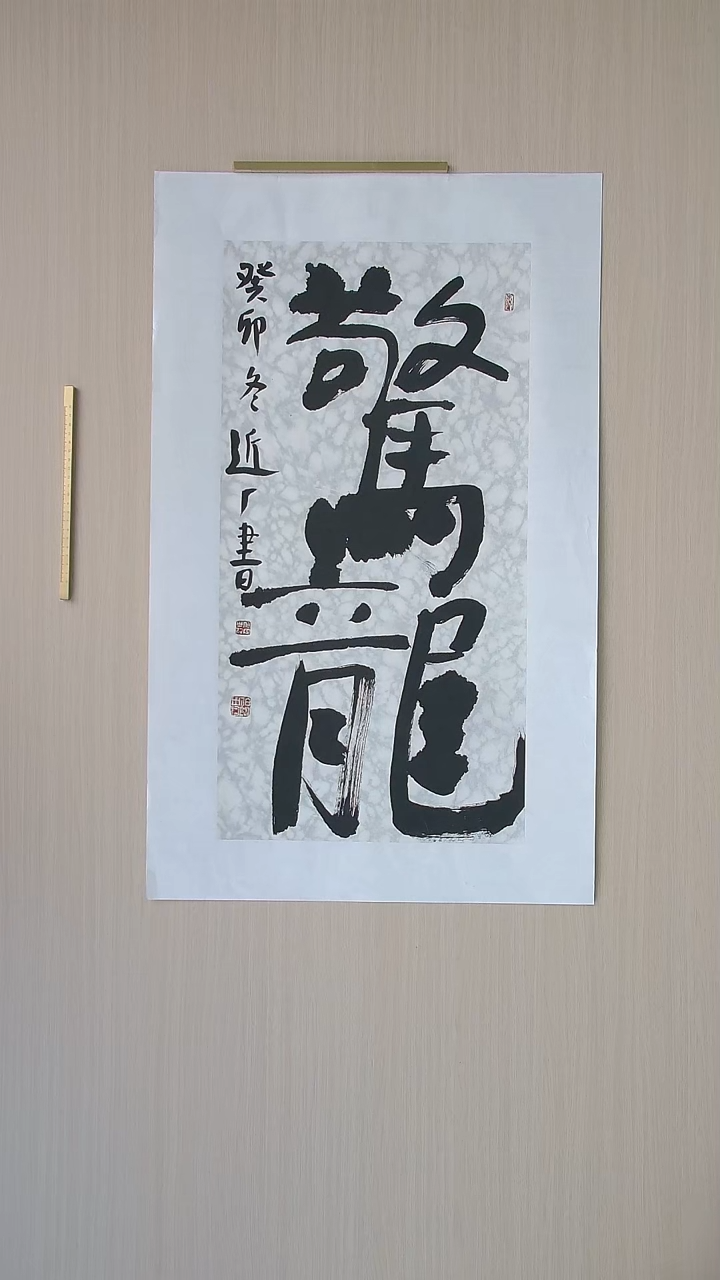 驚龍
癸卯冬近厂書